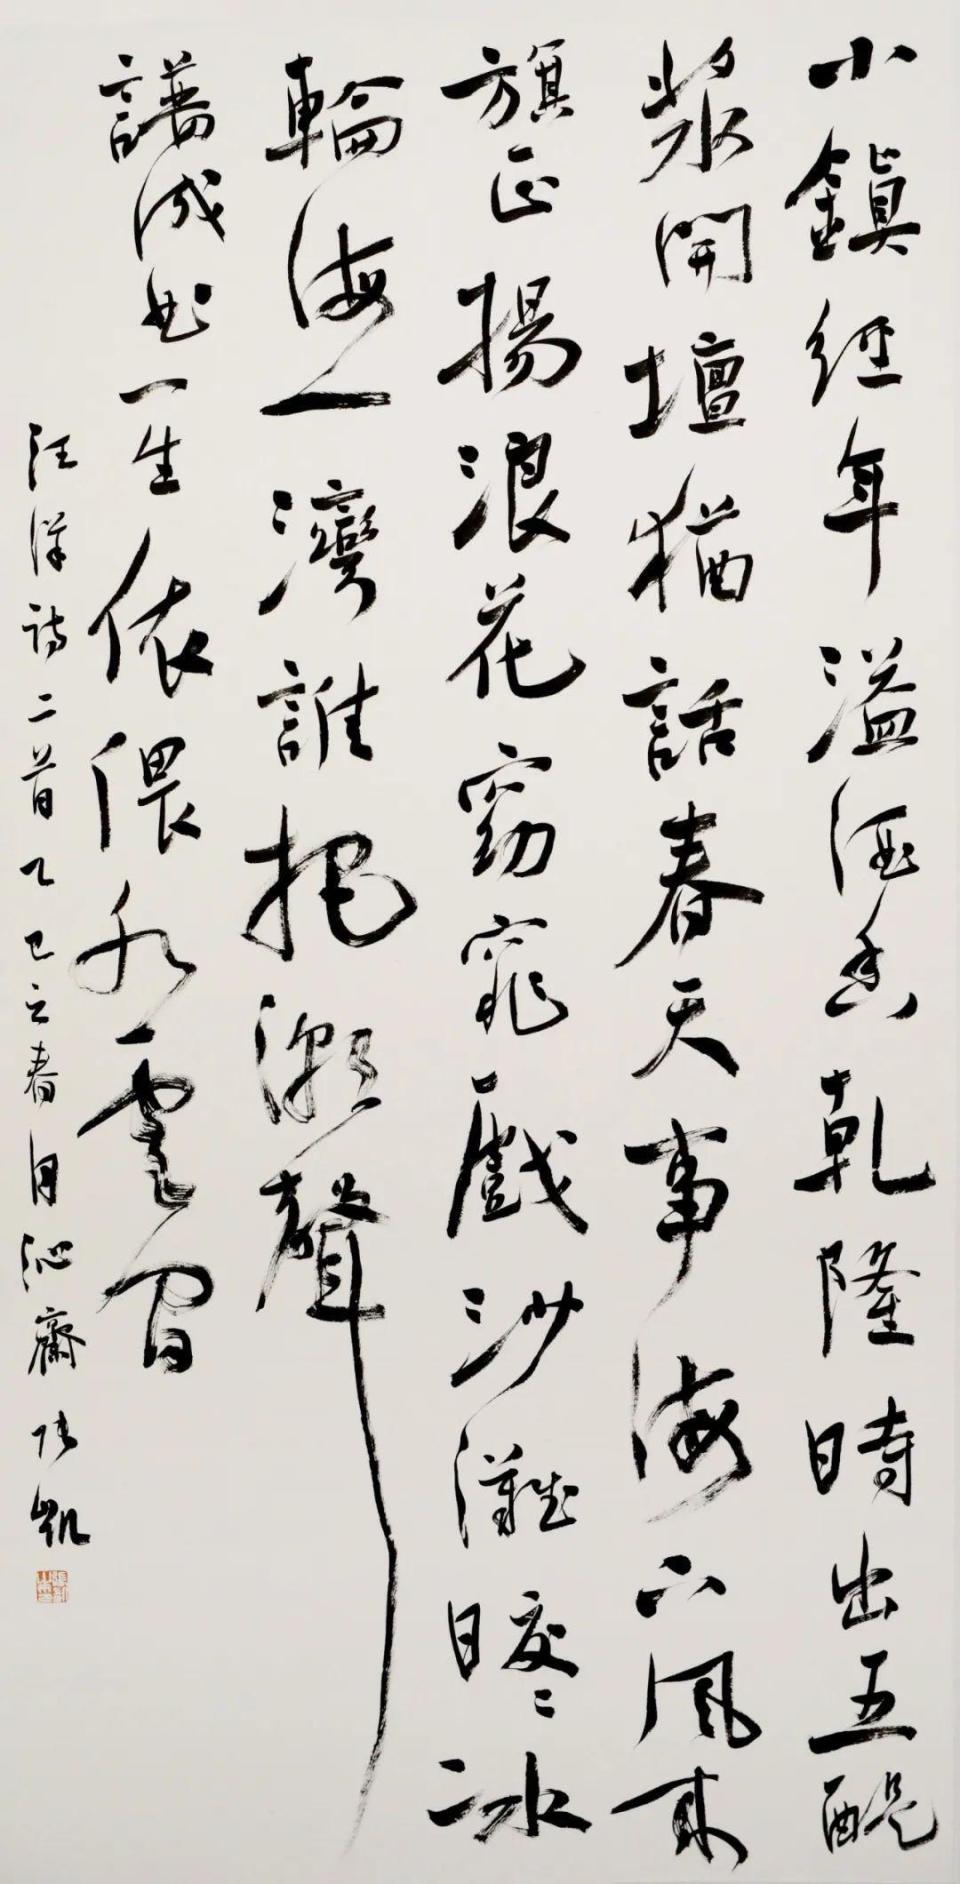 小鎮經年溢酒香乾隆時出五醍
漿開壇猶話春天事海口風來
旗正揚浪花窈窕戲沙灘日暖冰
輪海一灣誰把潮聲
譜成曲一生依偎水雲間
汪洋詩二首乙巳之春月沁齋張凱